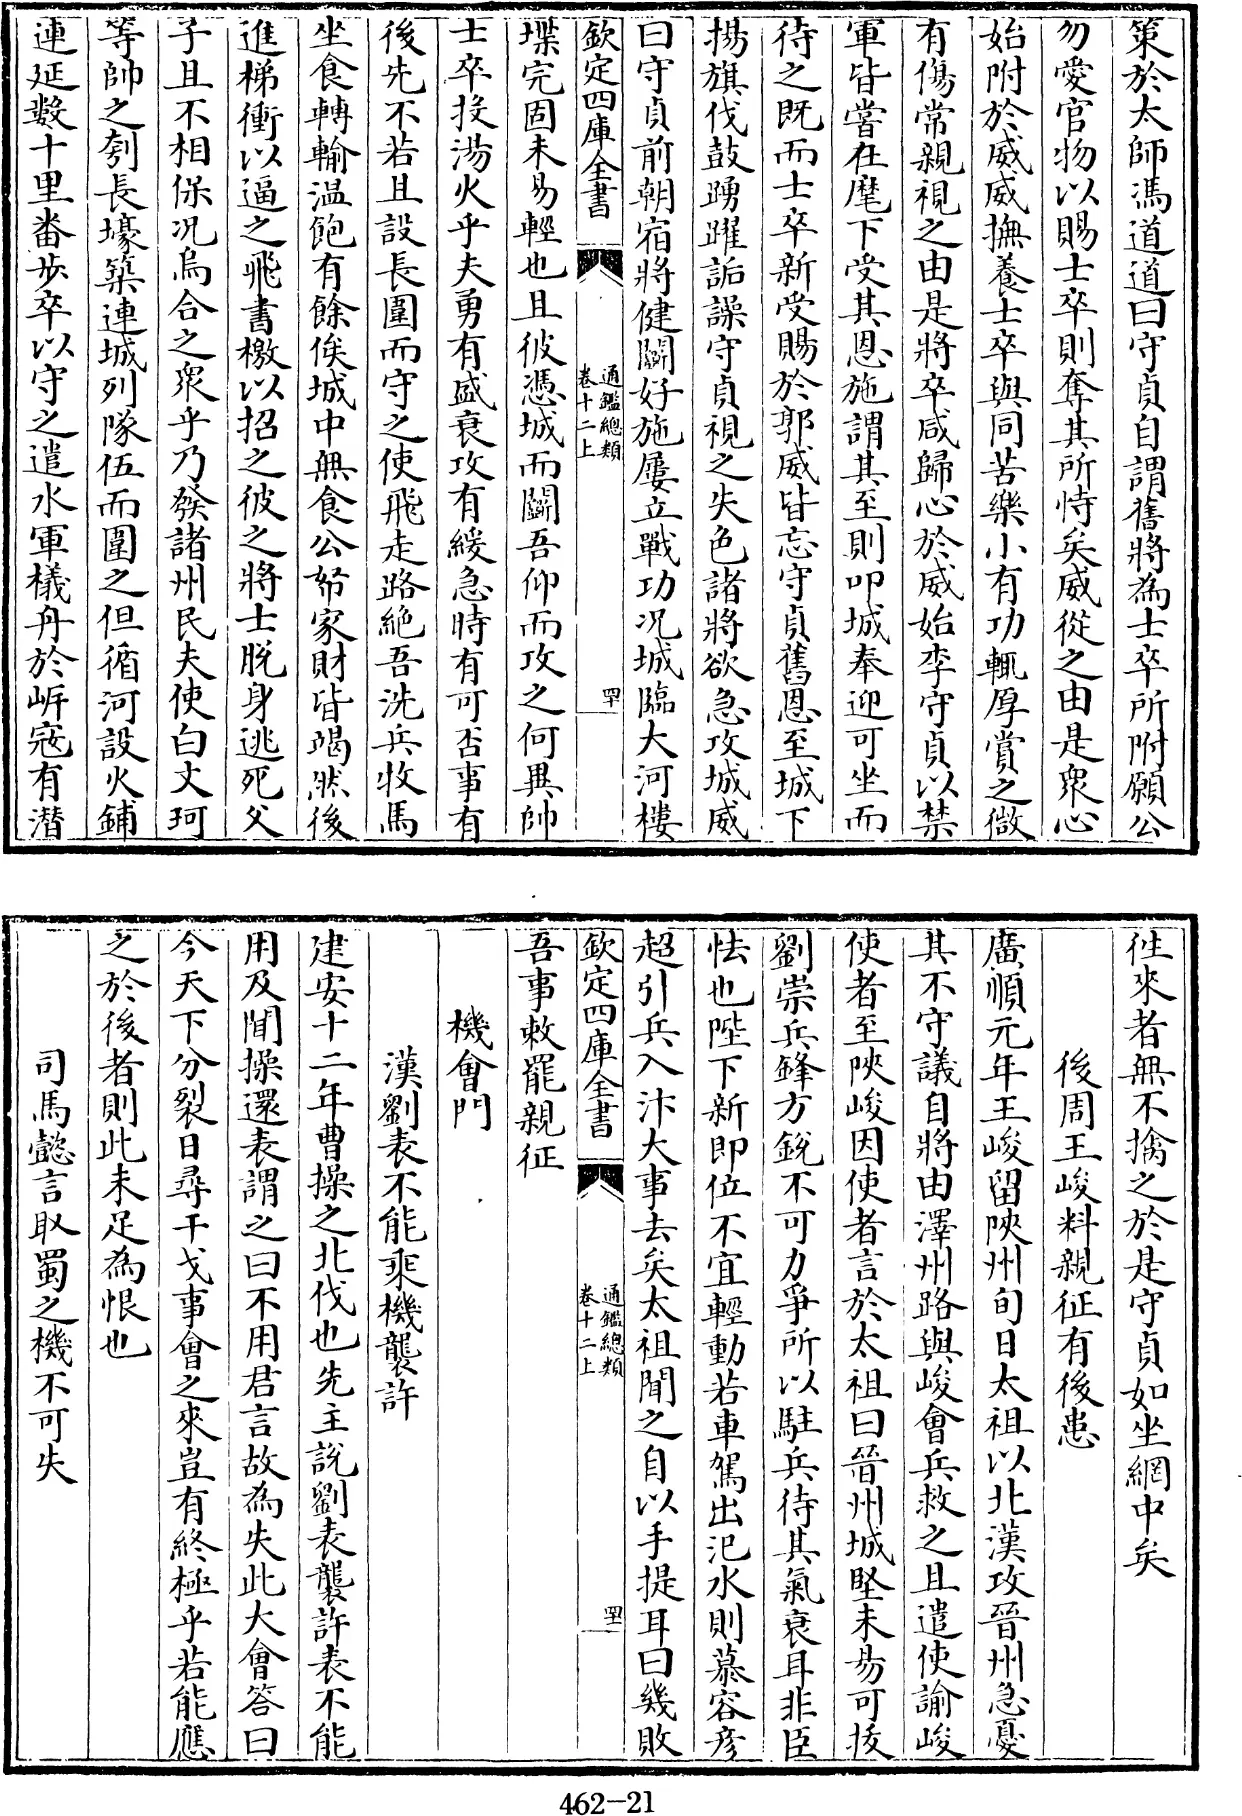 策於太師馮道道曰守貞自謂舊將為士卒所附願公
勿愛官物以賜士卒則奪其所恃矣威從之由是衆心
始附於威威撫養士卒與同苦樂小有功輒厚賞之微
有傷常親視之由是將卒咸歸心於威始李守貞以禁
軍皆嘗在麾下受其恩施謂其至則叩城奉迎可坐而
待之既而士卒新受賜於郭威皆忘守貞舊恩至城下
揚旗伐鼓踴躍詬譟守貞視之失色諸將欲急攻城威
曰守貞前朝宿將健鬭好施屢立戰功況城臨大河樓
欽定四庫全書
通鑑總類
卷十二上
四十
堞完固未易輕也且彼憑城而鬭吾仰而攻之何異帥
士卒投湯火乎夫勇有盛衰攻有緩急時有可否事有
後先不若且設長圍而守之使飛走路絶吾洗兵牧馬
坐食轉輸温飽有餘俟城中無食公帑家財皆竭然後
進梯衝以逼之飛書檄以招之彼之將士脱身逃死父
子且不相保況烏合之衆乎乃發諸州民夫使白文珂
等帥之刳長壕築連城列隊伍而圍之但循河設火鋪
連延數十里畨步卒以守之遣水軍檥舟於岸寇有潛
徃來者無不擒之於是守貞如坐網中矣
後周王峻料親征有後患
廣順元年王峻留陜州旬日太祖以北漢攻晉州急憂
其不守議自將由澤州路與峻會兵救之且遣使諭峻
使者至陜峻因使者言於太祖曰晉州城堅未易可拔
劉崇兵鋒方銳不可力爭所以駐兵待其氣衰耳非臣
怯也陛下新即位不宜輕動若車駕出汜水則慕容彦
超引兵入汴大事去矣太祖聞之自以手提耳曰幾敗
欽定四庫全書
通鑑總類
卷十二上
四十一
吾事敕罷親征
機會門
漢劉表不能乘機襲許
建安十二年曹操之北伐也先主說劉表襲許表不能
用及聞操還表謂之曰不用君言故為失此大會答曰
今天下分裂日尋干戈事會之來豈有終極乎若能應
之於後者則此未足為恨也
司馬懿言取蜀之機不可失
462-21